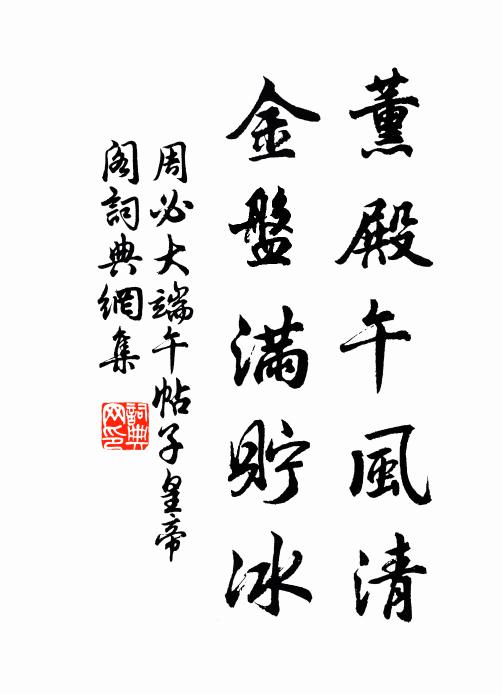 薰殿午風清
金盤滿貯冰
周必大端午帖子皇帝
閣詞典網集
詞典
网印